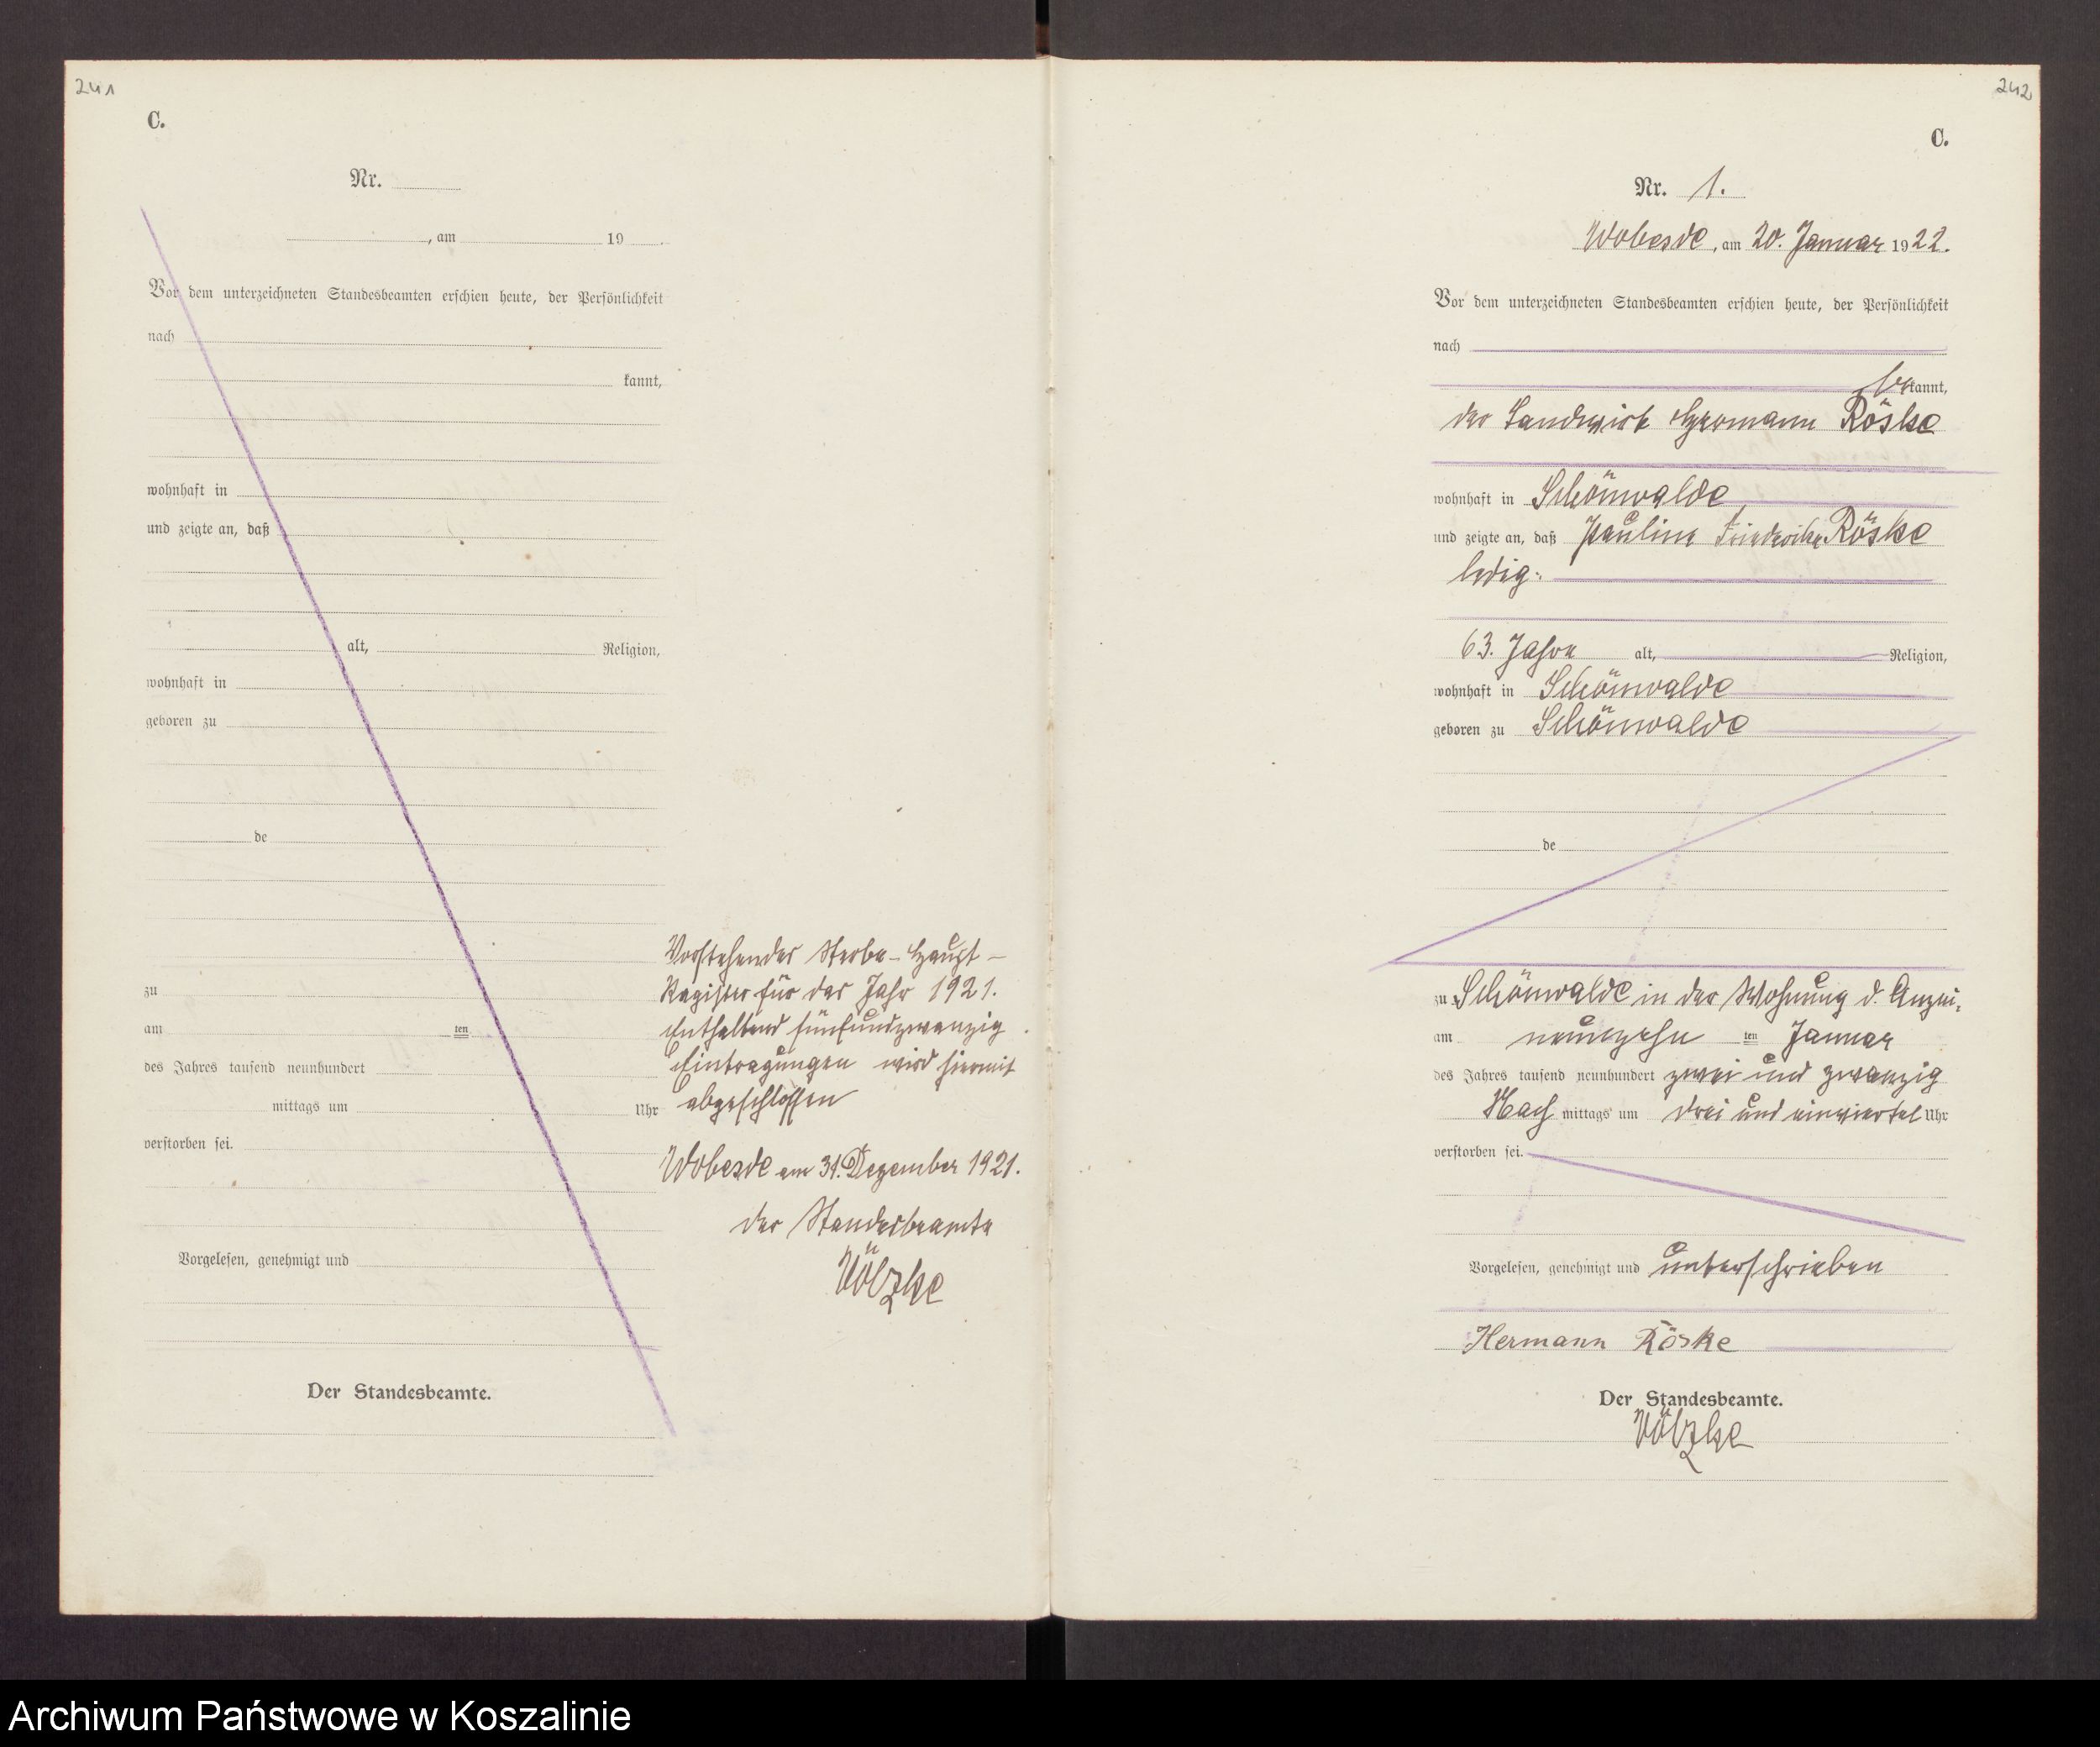 241
C.
Nr.
, am 19 .
Vor dem unterzeichneten Standesbeamten erschien heute, der Persönlichkeit
nach
kannt,
wohnhaft in
und zeigte an, daß
alt, Religion,
wohnhaft in
geboren zu
de
zu
am ten
des Jahres tausend neunhundert
mittags um Uhr
verstorben sei.
Vorgelesen, genehmigt und
Der Standesbeamte.
Vorstehendes Sterbe-Haupt-
Register für das Jahr 1921.
Enthaltend fünfundzwanzig
Eintragungen wird hiermit
abgeschlossen
Wobesde am 31. Dezember 1921.
der Standesbeamte
Völzke
242
C.
Nr. 1.
Wobesde, am 20. Januar 1922.
Vor dem unterzeichneten Standesbeamten erschien heute, der Persönlichkeit
nach
bekannt,
der Landwirt Hermann Röske
wohnhaft in Schönwalde
und zeigte an, daß Pauline Friederike Röske
ledig.
63. Jahre alt, Religion,
wohnhaft in Schönwalde
geboren zu Schönwalde
de
zu Schönwalde in der Wohnung d. Anzei-
am neunzehn ten Januar
des Jahres tausend neunhundert zwei und zwanzig
Nach mittags um drei und einviertel Uhr
verstorben sei.
Vorgelesen, genehmigt und unterschrieben
Hermann Röske
Der Standesbeamte.
Völzke
Archiwum Państwowe w Koszalinie